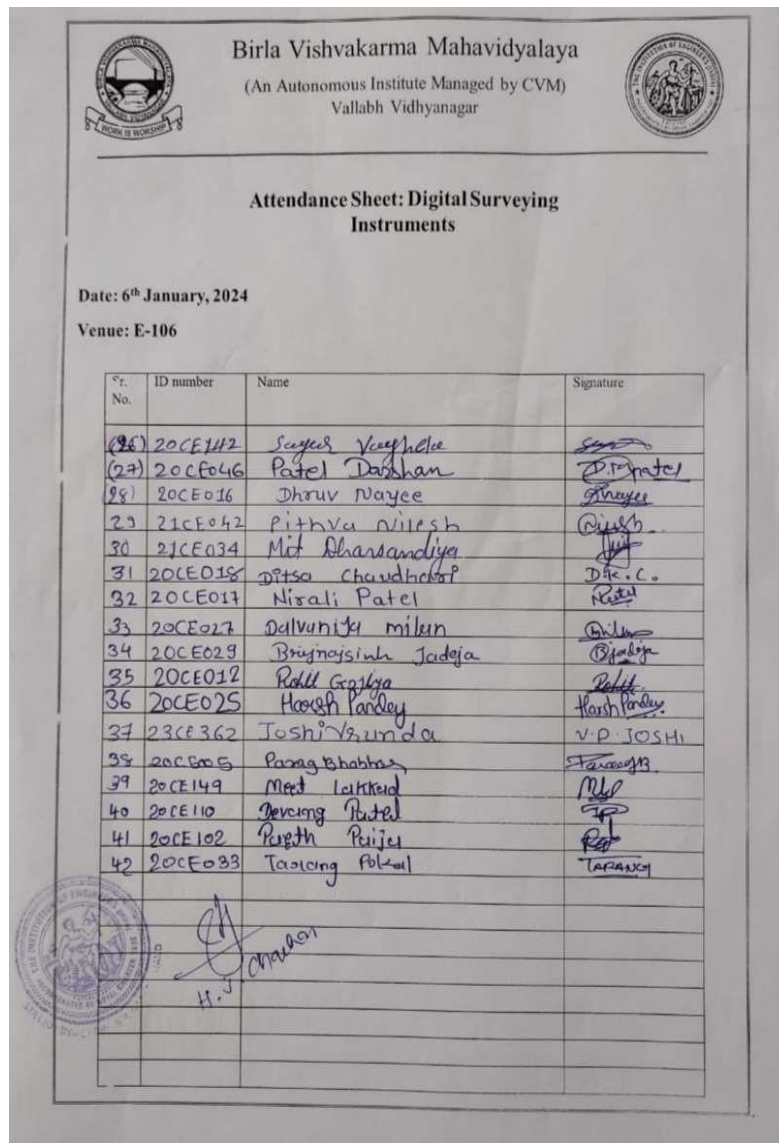 Birla Vishvakarma Mahavidyalaya
(An Autonomous Institute Managed by CVM)
Vallabh Vidhyanagar
WORK IS WORSHIP
Attendance Sheet: Digital Surveying
Instruments
Date: 6th January, 2024
Venue: E-106
Sr. No. ID number Name Signature
(26) 20CE142 Vaghela
(27) 20CE046 Patel Darshan D.M.patel
(28) 20CE016 Dhruv Nayee Dnayee
29 21CE042 Pithva Nilesh Nilesh
30 21CE034 Mit Dharsandiya
31 20CE018 Ditsa Chaudhari D.K.C.
32 20CE017 Nirali Patel
33 20CE027 Dalvaniya milan
34 20CE029 Brijrajsinh Jadeja Bjadeja
35 20CE012 Rohit Rohit
36 20CE025 Harsh Pandey Harsh Pandey
37 23CE362 Joshi Vrunda V.D.JOSHI
38 20CE005 Parag Bhabhor ParagB.
39 20CE149 Meet Lakkad
40 20CE110 Devang Patel
41 20CE102 Parth Paija
42 20CE033 Tarang Pokal TARANG
H.J. Chauhan